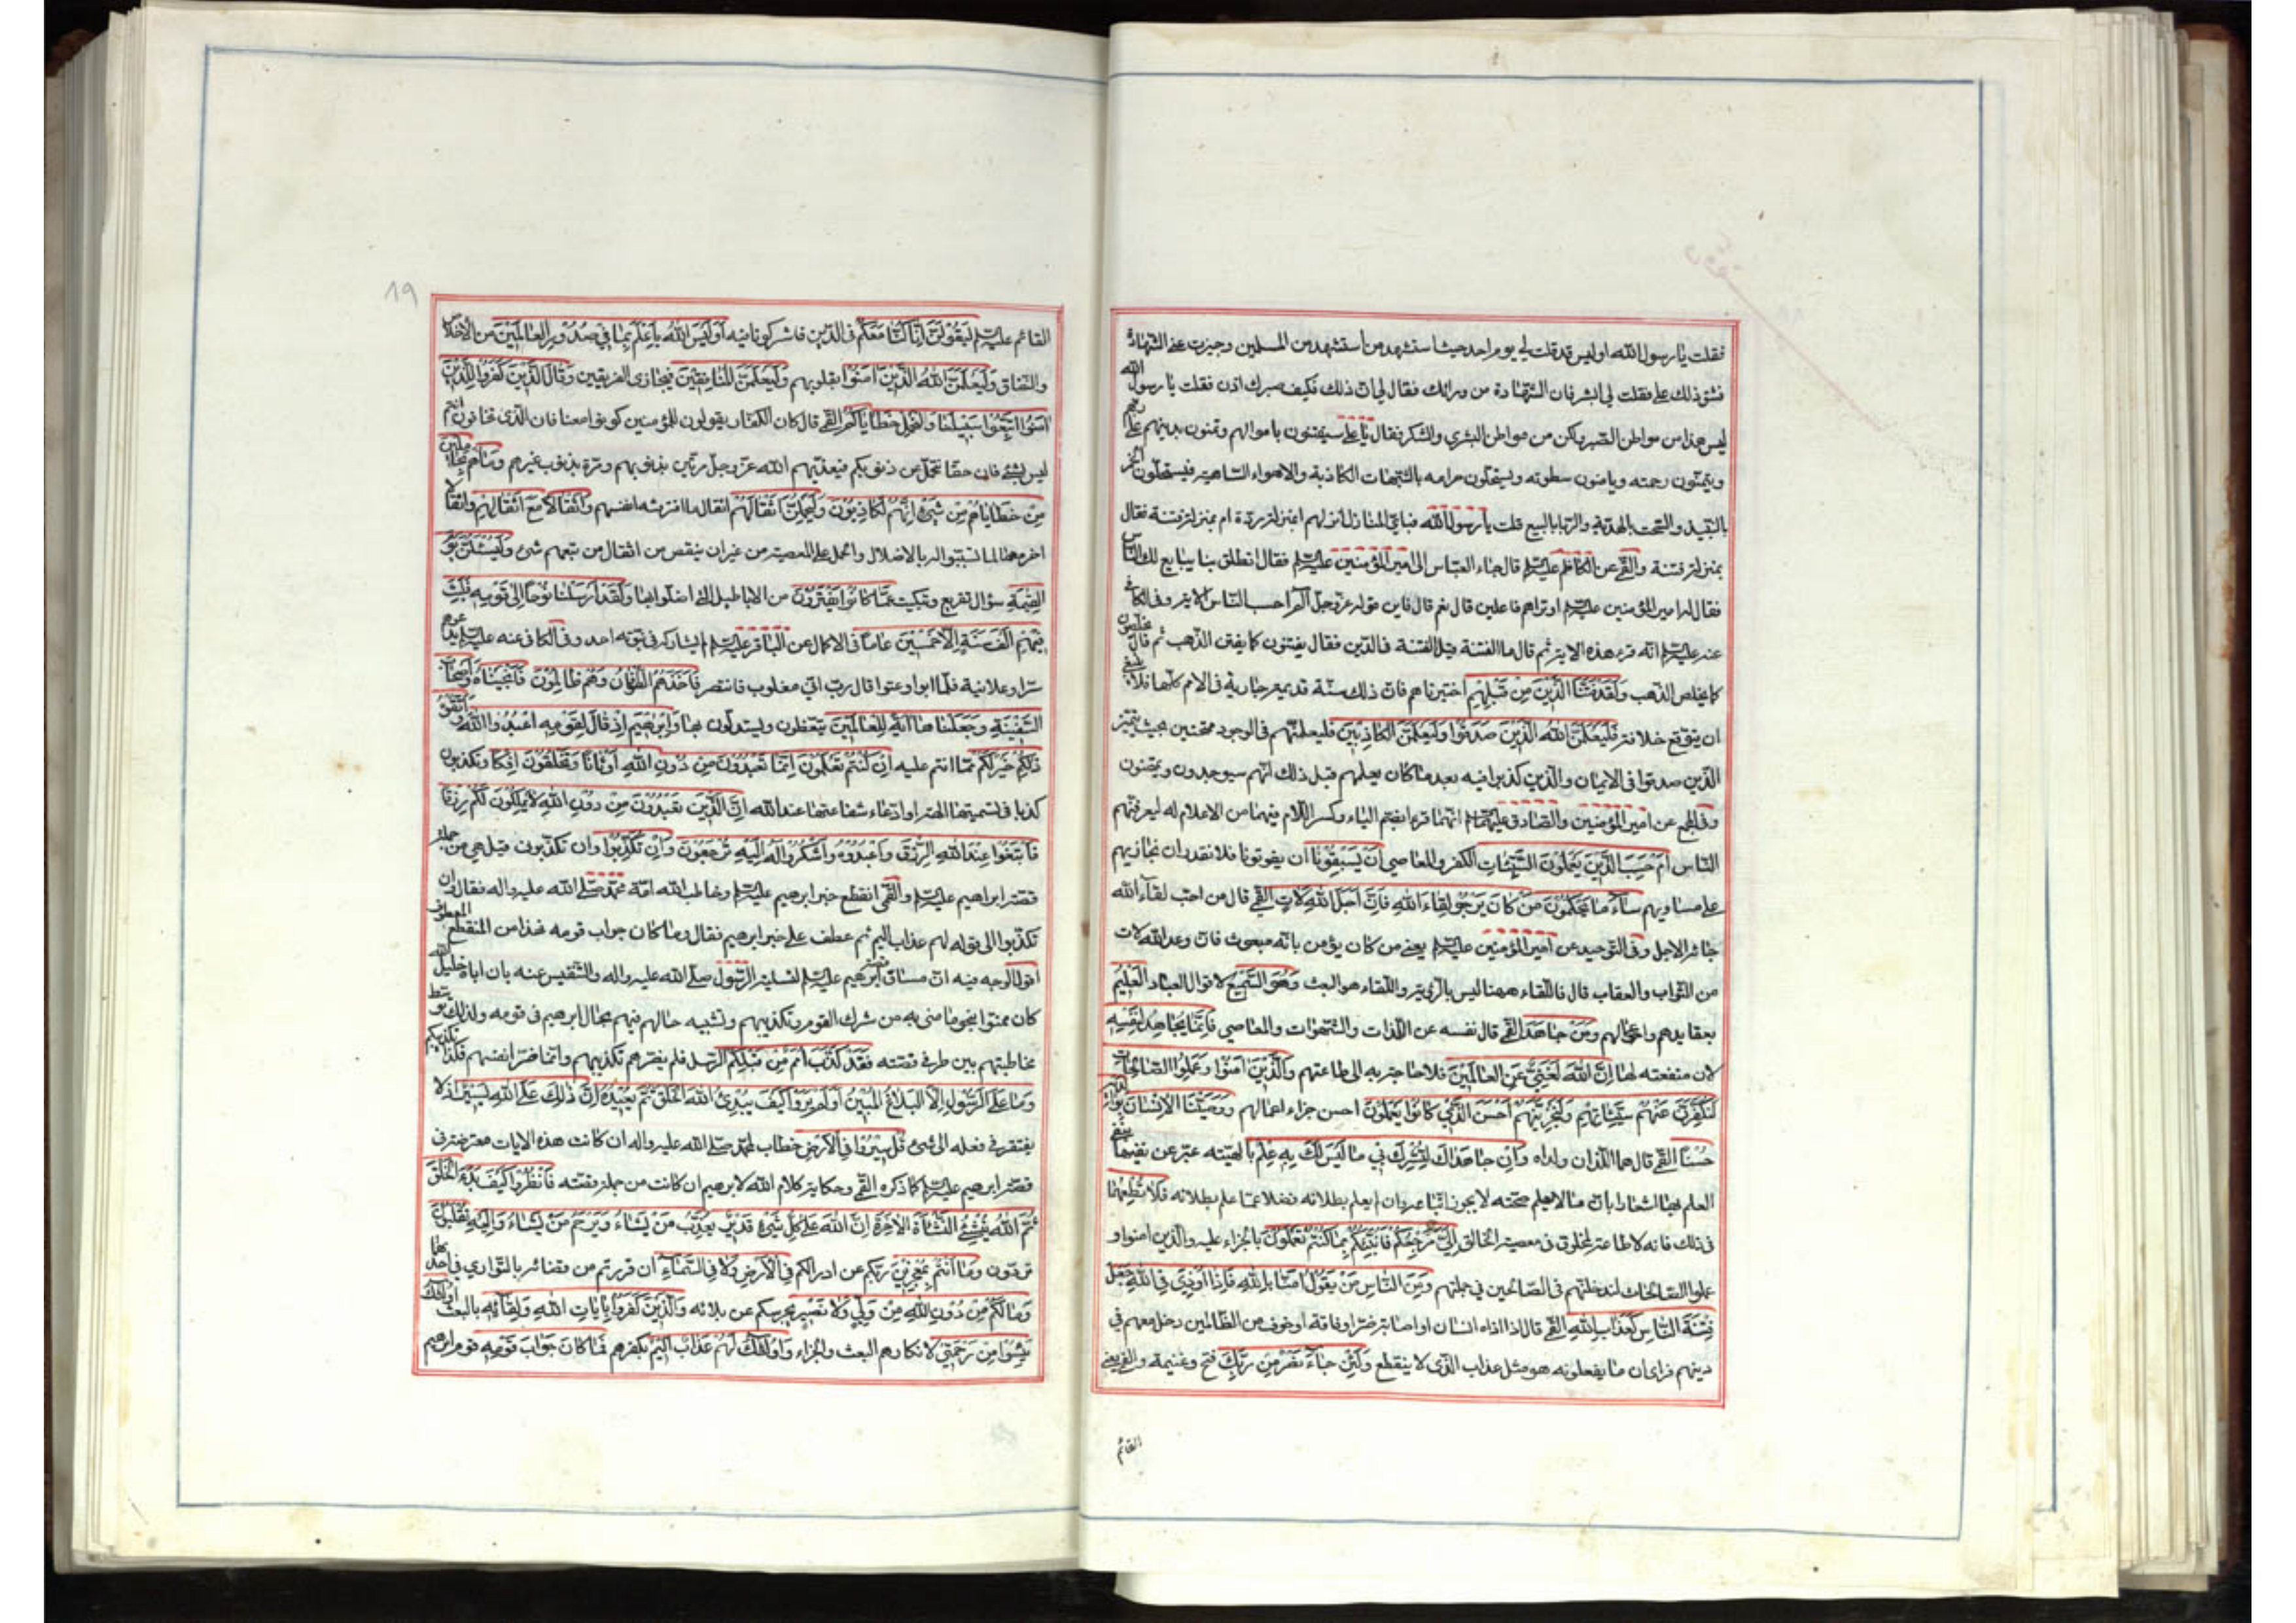 فقلت يا رسول الله اوليس قد قلت لي يوم احد حيث استشهد من استشهد من المسلمين وحيزت عني الشهادة
فشق ذلك علي فقلت لي ابشر فان الشهادة من ورائك فقال لي ان ذلك فكيف صبرك اذن فقلت يا رسول الله
ليس هذا من مواطن الصبر ولكن من مواطن البشرى والشكر فقال يا علي سيفتنون باموالهم ويمنون بدينهم على ربهم
ويتمنون رحمته ويامنون سطوته ويستحلون حرامه بالشبهات الكاذبة والاهواء الساهية فيستحلون الخمر
بالنبيذ والسحت بالهدية والربا بالبيع قلت يا رسول الله فباي المنازل انزلهم ابمنزلة ردة ام بمنزلة فتنة فقال
بمنزلة فتنة والقمي عن الكاظم عليه السلم قال جاء العباس الى امير المؤمنين عليه السلم فقال انطلق بنا يبايع لك الناس
فقال له امير المؤمنين عليه السلم اوتراهم فاعلين قال نعم قال فاين قوله عز وجل الم احسب الناس الاية وفي الكافي
عنه عليه السلم انه قرء هذه الاية ثم قال ما الفتنة قيل الفتنة في الدين فقال يفتنون كما يفتن الذهب ثم قال يخلصون
كما يخلص الذهب وَلَقَدْ فَتَنَّا الَّذِينَ مِنْ قَبْلِهِمْ اختبرناهم فان ذلك سنة قديمة جارية في الامم كلها فلا ينبغي
ان يتوقع خلافه فَلَيَعْلَمَنَّ اللهُ الَّذِينَ صَدَقُوا وَلَيَعْلَمَنَّ الْكَاذِبِينَ فليعلمنهم في الوجود ممتحنين بحيث يتميز
الذين صدقوا في الايمان والذين كذبوا فيه بعد ما كان يعلمهم قبل ذلك انهم سيوجدون ويمتحنون
وفي المجمع عن امير المؤمنين والصادق عليهما السلم انهما قرءا بضم الياء وكسر اللام فيهما من الاعلام اي ليعرفنهم
الناس أَمْ حَسِبَ الَّذِينَ يَعْمَلُونَ السَّيِّئَاتِ الكفر والمعاصي أَنْ يَسْبِقُونَا ان يفوتونا فلا نقدر ان نجازيهم
على مساويهم سَاءَ مَا يَحْكُمُونَ مَنْ كَانَ يَرْجُو لِقَاءَ اللهِ فَإِنَّ أَجَلَ اللهِ لَآتٍ القمي قال من احب لقاء الله
جائه الاجل وفي التوحيد عن امير المؤمنين عليه السلم يعني من كان يؤمن بانه مبعوث فان وعد الله لات
من الثواب والعقاب قال فاللقاء ههنا ليس بالرؤية واللقاء هو البعث وَهُوَ السَّمِيعُ لاقوال العباد الْعَلِيمُ
بعقايدهم واعمالهم وَمَنْ جَاهَدَ القمي قال نفسه عن اللذات والشهوات والمعاصي فَإِنَّمَا يُجَاهِدُ لِنَفْسِهِ
لان منفعته لها إِنَّ اللهَ لَغَنِيٌّ عَنِ الْعَالَمِينَ فلا حاجة به الى طاعتهم وَالَّذِينَ آمَنُوا وَعَمِلُوا الصَّالِحَاتِ
لَنُكَفِّرَنَّ عَنْهُمْ سَيِّئَاتِهِمْ وَلَنَجْزِيَنَّهُمْ أَحْسَنَ الَّذِي كَانُوا يَعْمَلُونَ احسن جزاء اعمالهم وَوَصَّيْنَا الْإِنْسَانَ بِوَالِدَيْهِ
حُسْنًا القمي قال هما اللذان ولداه وَإِنْ جَاهَدَاكَ لِتُشْرِكَ بِي مَا لَيْسَ لَكَ بِهِ عِلْمٌ بالهيته عبر عن نفيها بنفي
العلم بها اشعارا بان ما لا يعلم صحته لا يجوز اتباعه وان لم يعلم بطلانه فضلا عما علم بطلانه فَلَا تُطِعْهُمَا
في ذلك فانه لا طاعة لمخلوق في معصية الخالق إِلَيَّ مَرْجِعُكُمْ فَأُنَبِّئُكُمْ بِمَا كُنْتُمْ تَعْمَلُونَ بالجزاء عليه والذين امنوا و
عملوا الصالحات لندخلنهم في الصالحين في جملتهم وَمِنَ النَّاسِ مَنْ يَقُولُ آمَنَّا بِاللهِ فَإِذَا أُوذِيَ فِي اللهِ جَعَلَ
فِتْنَةَ النَّاسِ كَعَذَابِ اللهِ القمي قال اذا اذاه انسان او اصابه ضر او فاقة او خوف من الظالمين دخل معهم في
دينهم فراى ان ما يفعلونه هو مثل عذاب الذي لا ينقطع وَلَئِنْ جَاءَ نَصْرٌ مِنْ رَبِّكَ فتح وغنيمة والقمي يعني
القائم
١٩
القائم عليه السلم لَيَقُولُنَّ إِنَّا كُنَّا مَعَكُمْ في الدين فاشركونا فيه أَوَلَيْسَ اللهُ بِأَعْلَمَ بِمَا فِي صُدُورِ الْعَالَمِينَ من الاخلاص
والنفاق وَلَيَعْلَمَنَّ اللهُ الَّذِينَ آمَنُوا بقلوبهم وَلَيَعْلَمَنَّ الْمُنَافِقِينَ فيجازى الفريقين وَقَالَ الَّذِينَ كَفَرُوا لِلَّذِينَ
آمَنُوا اتَّبِعُوا سَبِيلَنَا وَلْنَحْمِلْ خَطَايَاكُمْ القمي قال كان الكفار يقولون للمؤمنين كونوا معنا فان الذي تخافون انتم
ليس بشئ فان حقا نتحمل عن ذنوبكم فيعذبهم الله عز وجل مرتين بذنوبهم ومرة بذنوب غيرهم وَمَا هُمْ بِحَامِلِينَ
مِنْ خَطَايَاهُمْ مِنْ شَيْءٍ إِنَّهُمْ لَكَاذِبُونَ وَلَيَحْمِلُنَّ أَثْقَالَهُمْ اثقال ما اقترفته انفسهم وَأَثْقَالًا مَعَ أَثْقَالِهِمْ واثقالا
اخر معها لما تسببوا له بالاضلال والحمل على المعصية من غير ان ينقص من اثقال من تبعهم شئ وَلَيُسْئَلُنَّ يَوْمَ
الْقِيمَةِ سؤال تقريع وتبكيت عَمَّا كَانُوا يَفْتَرُونَ من الاباطيل التي اضلوا بها وَلَقَدْ أَرْسَلْنَا نُوحًا إِلَى قَوْمِهِ فَلَبِثَ
فِيهِمْ أَلْفَ سَنَةٍ إِلَّا خَمْسِينَ عَامًا في الاكمال عن الباقر عليه السلم لم يشاركه في نبوته احد وفي الكافي عنه عليه السلم يدعوهم
سرا وعلانية فلما ابوا وعتوا قال رب اني مغلوب فانتصر فَأَخَذَهُمُ الطُّوفَانُ وَهُمْ ظَالِمُونَ فَأَنْجَيْنَاهُ وَأَصْحَابَ
السَّفِينَةِ وَجَعَلْنَاهَا آيَةً لِلْعَالَمِينَ يتعظون ويستدلون بها وَإِبْرَهِيمَ إِذْ قَالَ لِقَوْمِهِ اعْبُدُوا اللهَ وَاتَّقُوهُ
ذَلِكُمْ خَيْرٌ لَكُمْ مما انتم عليه إِنْ كُنْتُمْ تَعْلَمُونَ إِنَّمَا تَعْبُدُونَ مِنْ دُونِ اللهِ أَوْثَانًا وَتَخْلُقُونَ إِفْكًا وتكذبون
كذبا في تسميتها الهة او ادعاء شفاعتها عند الله إِنَّ الَّذِينَ تَعْبُدُونَ مِنْ دُونِ اللهِ لَا يَمْلِكُونَ لَكُمْ رِزْقًا
فَابْتَغُوا عِنْدَ اللهِ الرِّزْقَ وَاعْبُدُوهُ وَاشْكُرُوا لَهُ إِلَيْهِ تُرْجَعُونَ وَإِنْ تُكَذِّبُوا وان تكذبون قيل هي من جملة
قصة ابراهيم عليه السلم والقمي انقطع خبر ابرهيم عليه السلم وخاطب الله امة محمد صلى الله عليه واله فقال وان
تكذبوا الى قوله لهم عذاب اليم ثم عطف على خبر ابرهيم فقال وما كان جواب قومه فهذا من المنقطع المعطوف
اقول الوجه فيه ان مساق قصة ابرهيم عليه السلم لتسلية الرسول صلى الله عليه واله والتنفيس عنه بان اباه خليل الله
كان ممنوا بنحو ما منى به من شرك القوم وتكذيبهم وتشبيه حالهم فيهم بحال ابرهيم في قومه ولذلك توسط
مخاطبتهم بين طرفي قصته فَقَدْ كَذَّبَ أُمَمٌ مِنْ قَبْلِكُمْ الرسل فلم يضرهم تكذيبهم وانما ضر انفسهم فكذا تكذيبكم
وَمَا عَلَى الرَّسُولِ إِلَّا الْبَلَاغُ الْمُبِينُ أَوَلَمْ يَرَوْا كَيْفَ يُبْدِئُ اللهُ الْخَلْقَ ثُمَّ يُعِيدُهُ إِنَّ ذَلِكَ عَلَى اللهِ يَسِيرٌ اذ لا
يفتقر في فعله الى شئ قُلْ سِيرُوا فِي الْأَرْضِ خطاب لمحمد صلى الله عليه واله ان كانت هذه الايات معترضة في
قصة ابرهيم عليه السلم كما ذكره القمي وحكاية كلام الله لابرهيم ان كانت من جملة قصته فَانْظُرُوا كَيْفَ بَدَءَ الْخَلْقَ
ثُمَّ اللهُ يُنْشِئُ النَّشْأَةَ الْآخِرَةَ إِنَّ اللهَ عَلَى كُلِّ شَيْءٍ قَدِيرٌ يُعَذِّبُ مَنْ يَشَاءُ وَيَرْحَمُ مَنْ يَشَاءُ وَإِلَيْهِ تُقْلَبُونَ
تردون وَمَا أَنْتُمْ بِمُعْجِزِينَ ربكم عن ادراككم فِي الْأَرْضِ وَلَا فِي السَّمَاءِ ان فررتم من قضائه بالتواري في احديهما
وَمَا لَكُمْ مِنْ دُونِ اللهِ مِنْ وَلِيٍّ وَلَا نَصِيرٍ يحرسكم عن بلائه وَالَّذِينَ كَفَرُوا بِآيَاتِ اللهِ وَلِقَائِهِ بالبعث أُولَئِكَ
يَئِسُوا مِنْ رَحْمَتِي لانكارهم البعث والجزاء وَأُولَئِكَ لَهُمْ عَذَابٌ أَلِيمٌ بكفرهم فَمَا كَانَ جَوَابَ قَوْمِهِ قوم ابرهيم